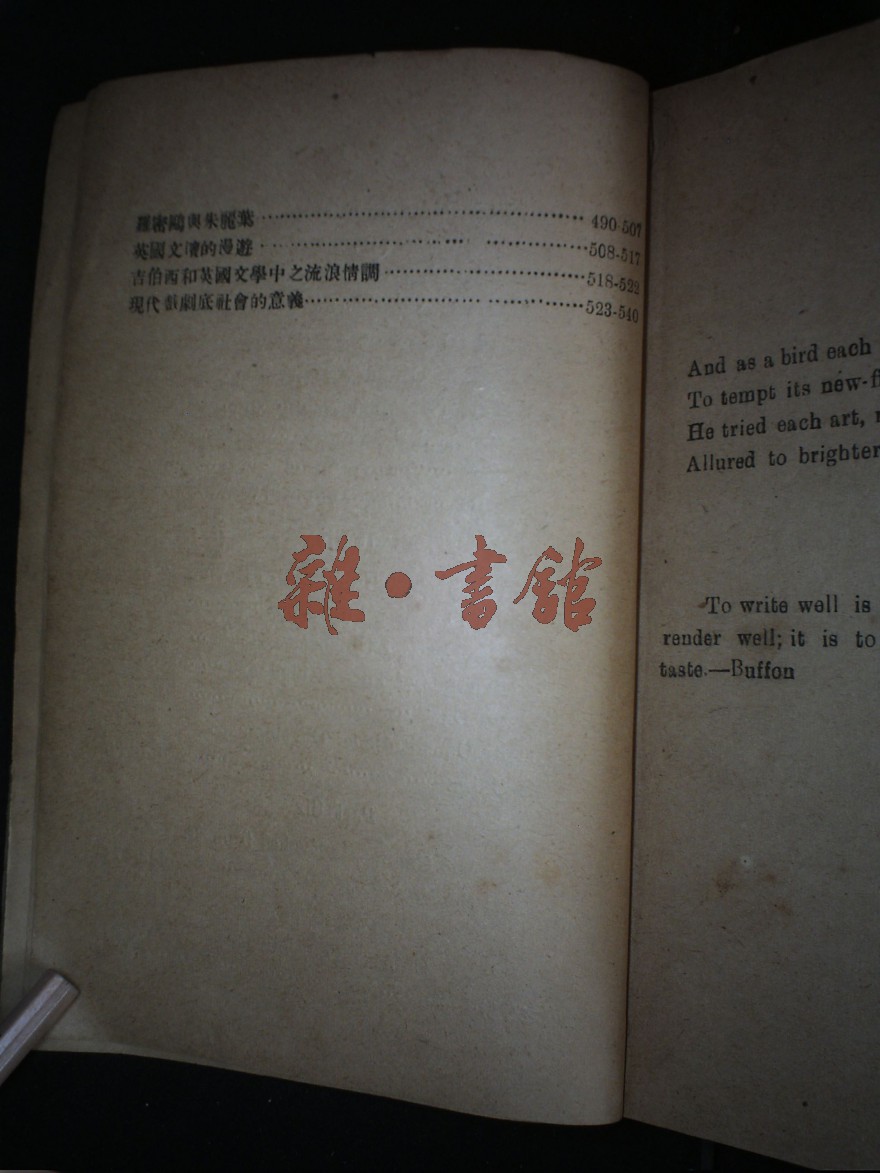 羅密鷗與朱麗葉 490-507
英國文壇的漫遊 508-517
吉伯西和英國文學中之流浪情調 518-522
現代戲劇底社會的意義 523-540
雜·書館
And as a bird each
To tempt its new-fl
He tried each art, r
Allured to brighter
To write well is
render well; it is to
taste.—Buffon